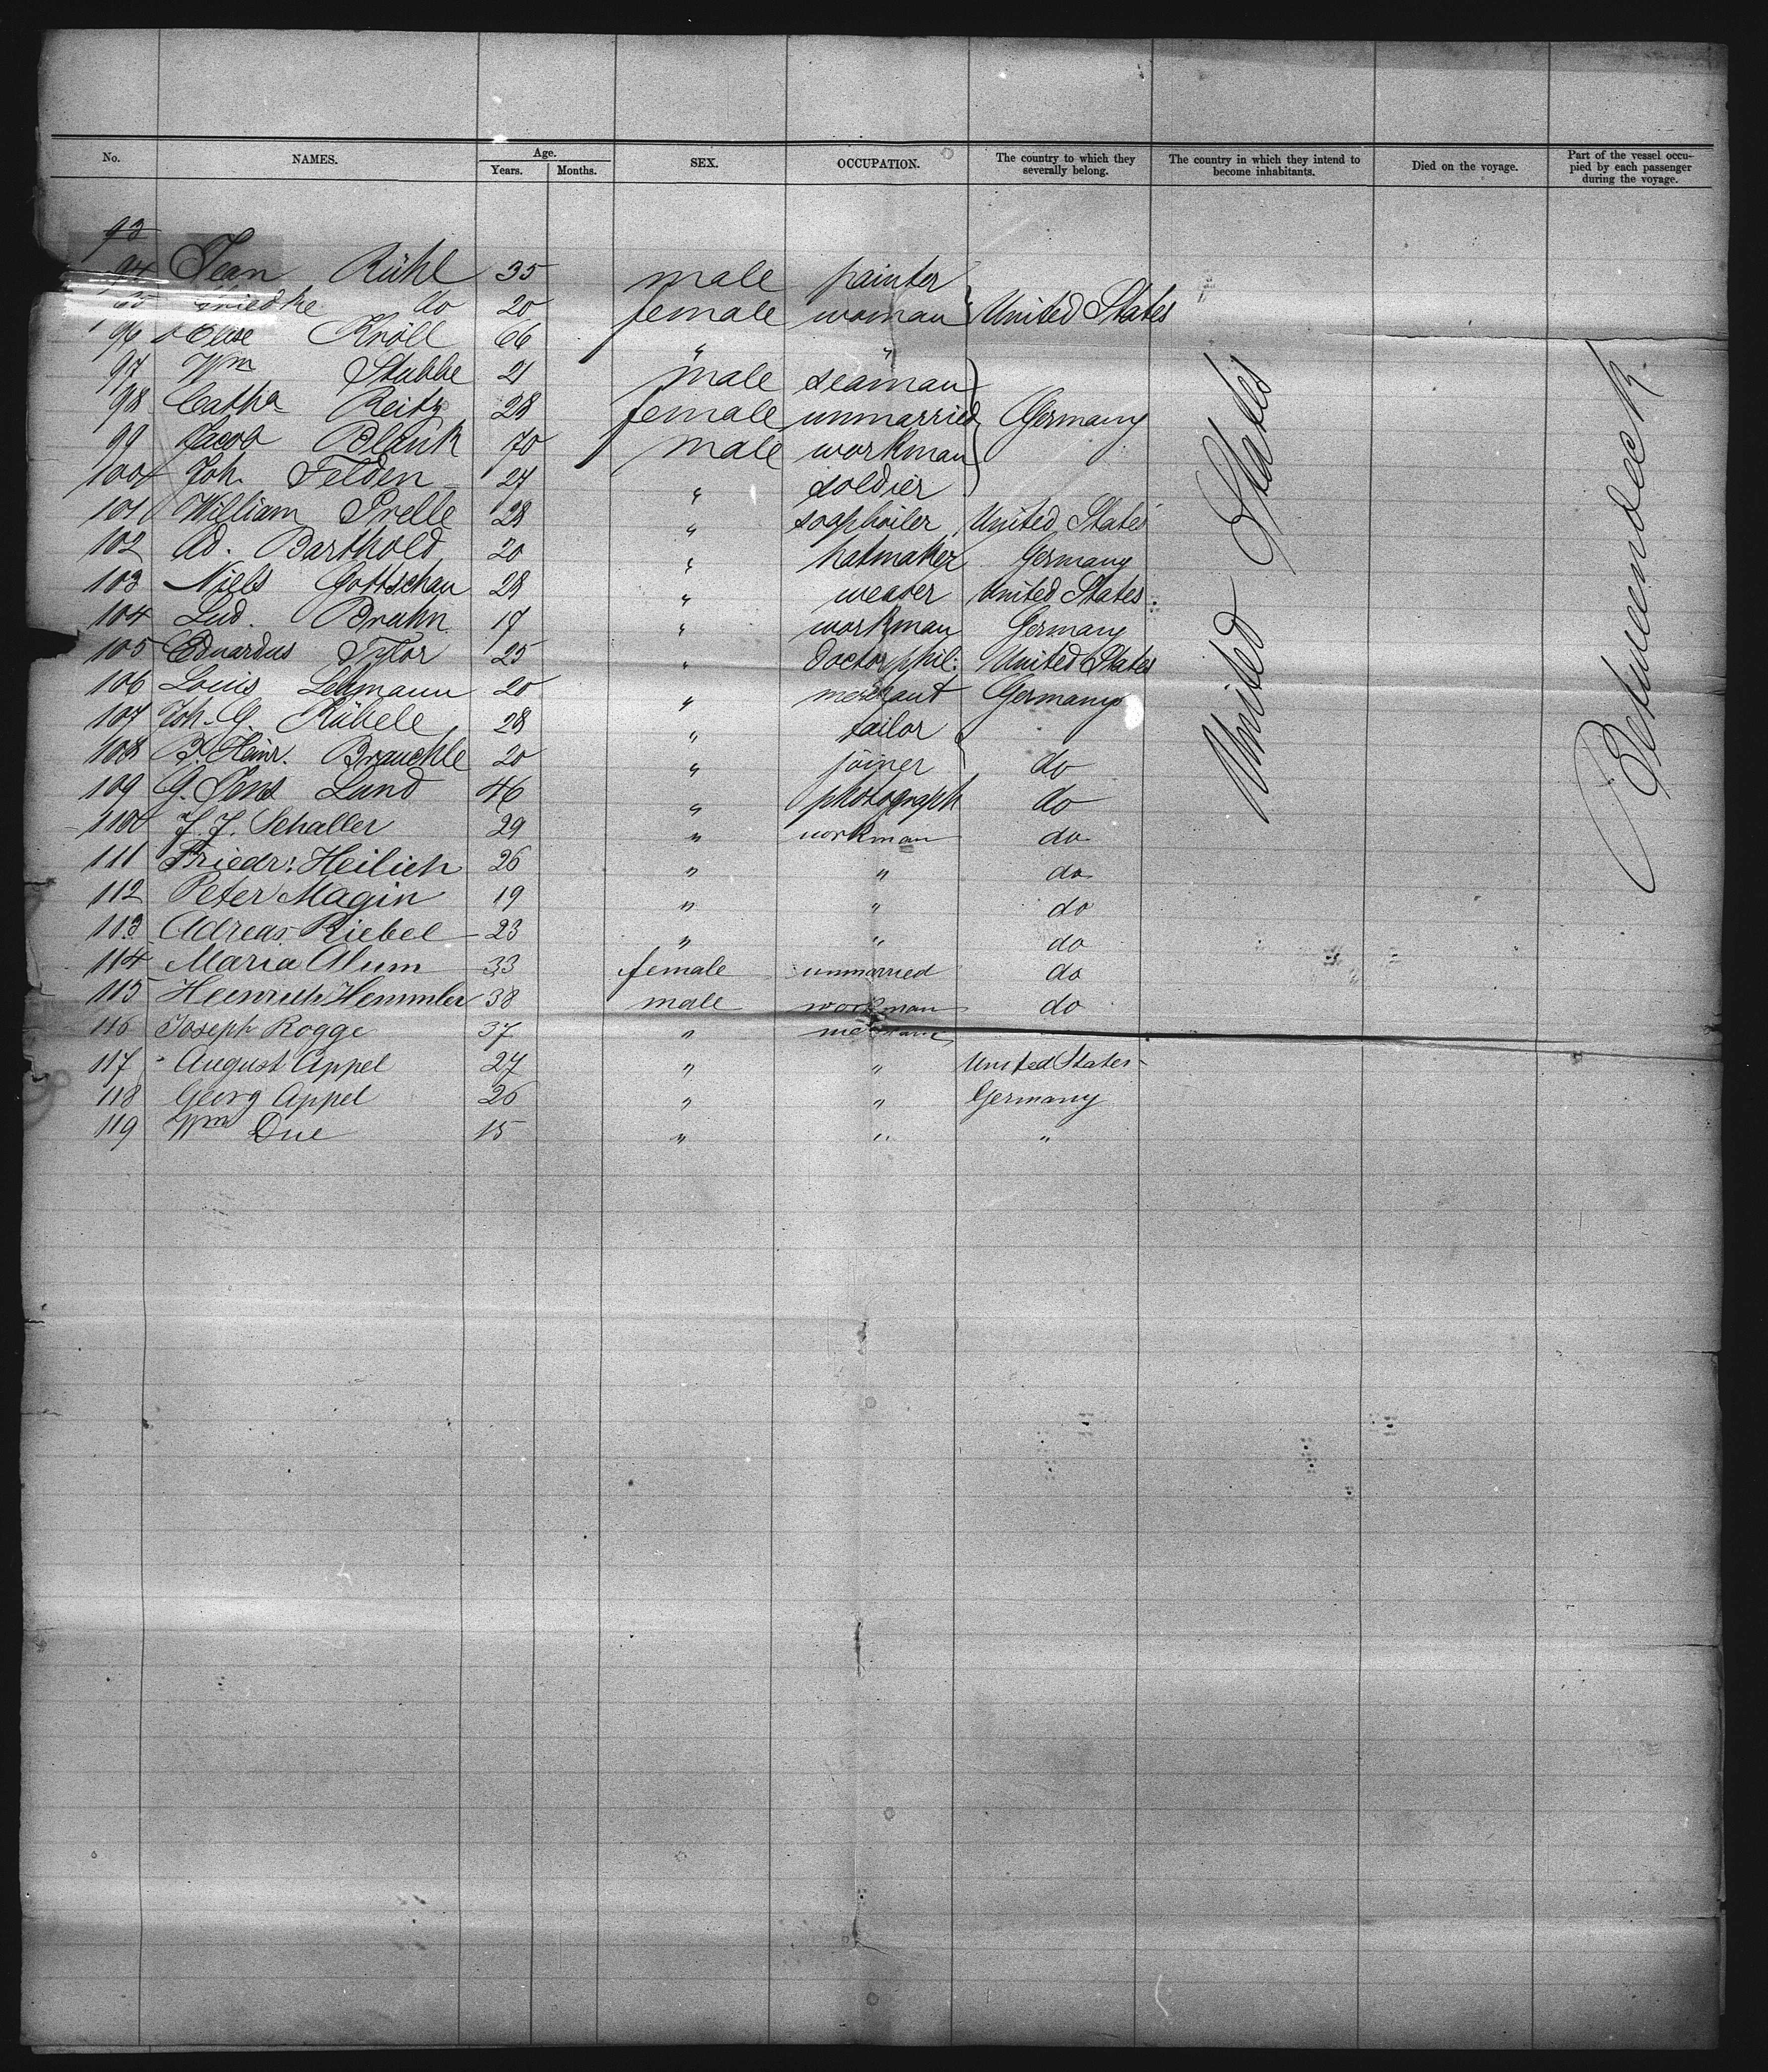 No. NAMES. Age. Years. Months. SEX. OCCUPATION. The country to which they severally belong. The country in which they intend to become inhabitants. Died on the voyage. Part of the vessel occupied by each passenger during the voyage.
93
94 Jean Rühl 35 male painter
95 Friedke do 20 female woman United States
96 Elise Kröll 66 " "
97 Wm Stubbe 21 male seaman
98 Catha Reitz 28 female unmarried Germany
99 Jacob Blank 70 male workman
100 Joh. Felden 24 " soldier
101 William Prelle 28 " soapboiler United States
102 Ad. Barthold 20 " hatmaker Germany
103 Niels Gottschau 28 " weaver United States
104 Lud. Bruhn 17 " workman Germany
105 Eduardus Tylor 25 " doctor phil: United States
106 Louis Lehmann 20 " merchant Germany
107 Joh. G. Kübele 28 " tailor
108 B. Heinr. Brauchle 20 " joiner do
109 G. Jens Lund 46 " photograph do
110 J. J. Schaller 29 " workman do
111 Friedr: Heilich 26 " " do
112 Peter Magin 19 " " do
113 Adreas Riebel 23 " " do
114 Maria Alum 33 female unmarried do
115 Heinrich Hemmler 38 male workman do
116 Joseph Rogge 37 "
117 August Appel 27 " " United States
118 Georg Appel 26 " " Germany
119 Wm Due 15 " " "
United States
Betweendeck